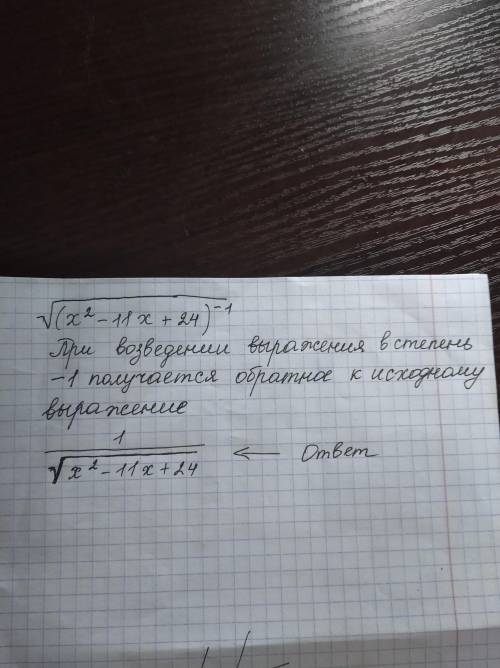 √(x² - 11x + 24)⁻¹
При возведении выражения в степень
-1 получается обратное к исходному
выражение
1
√x² - 11x + 24 ← Ответ